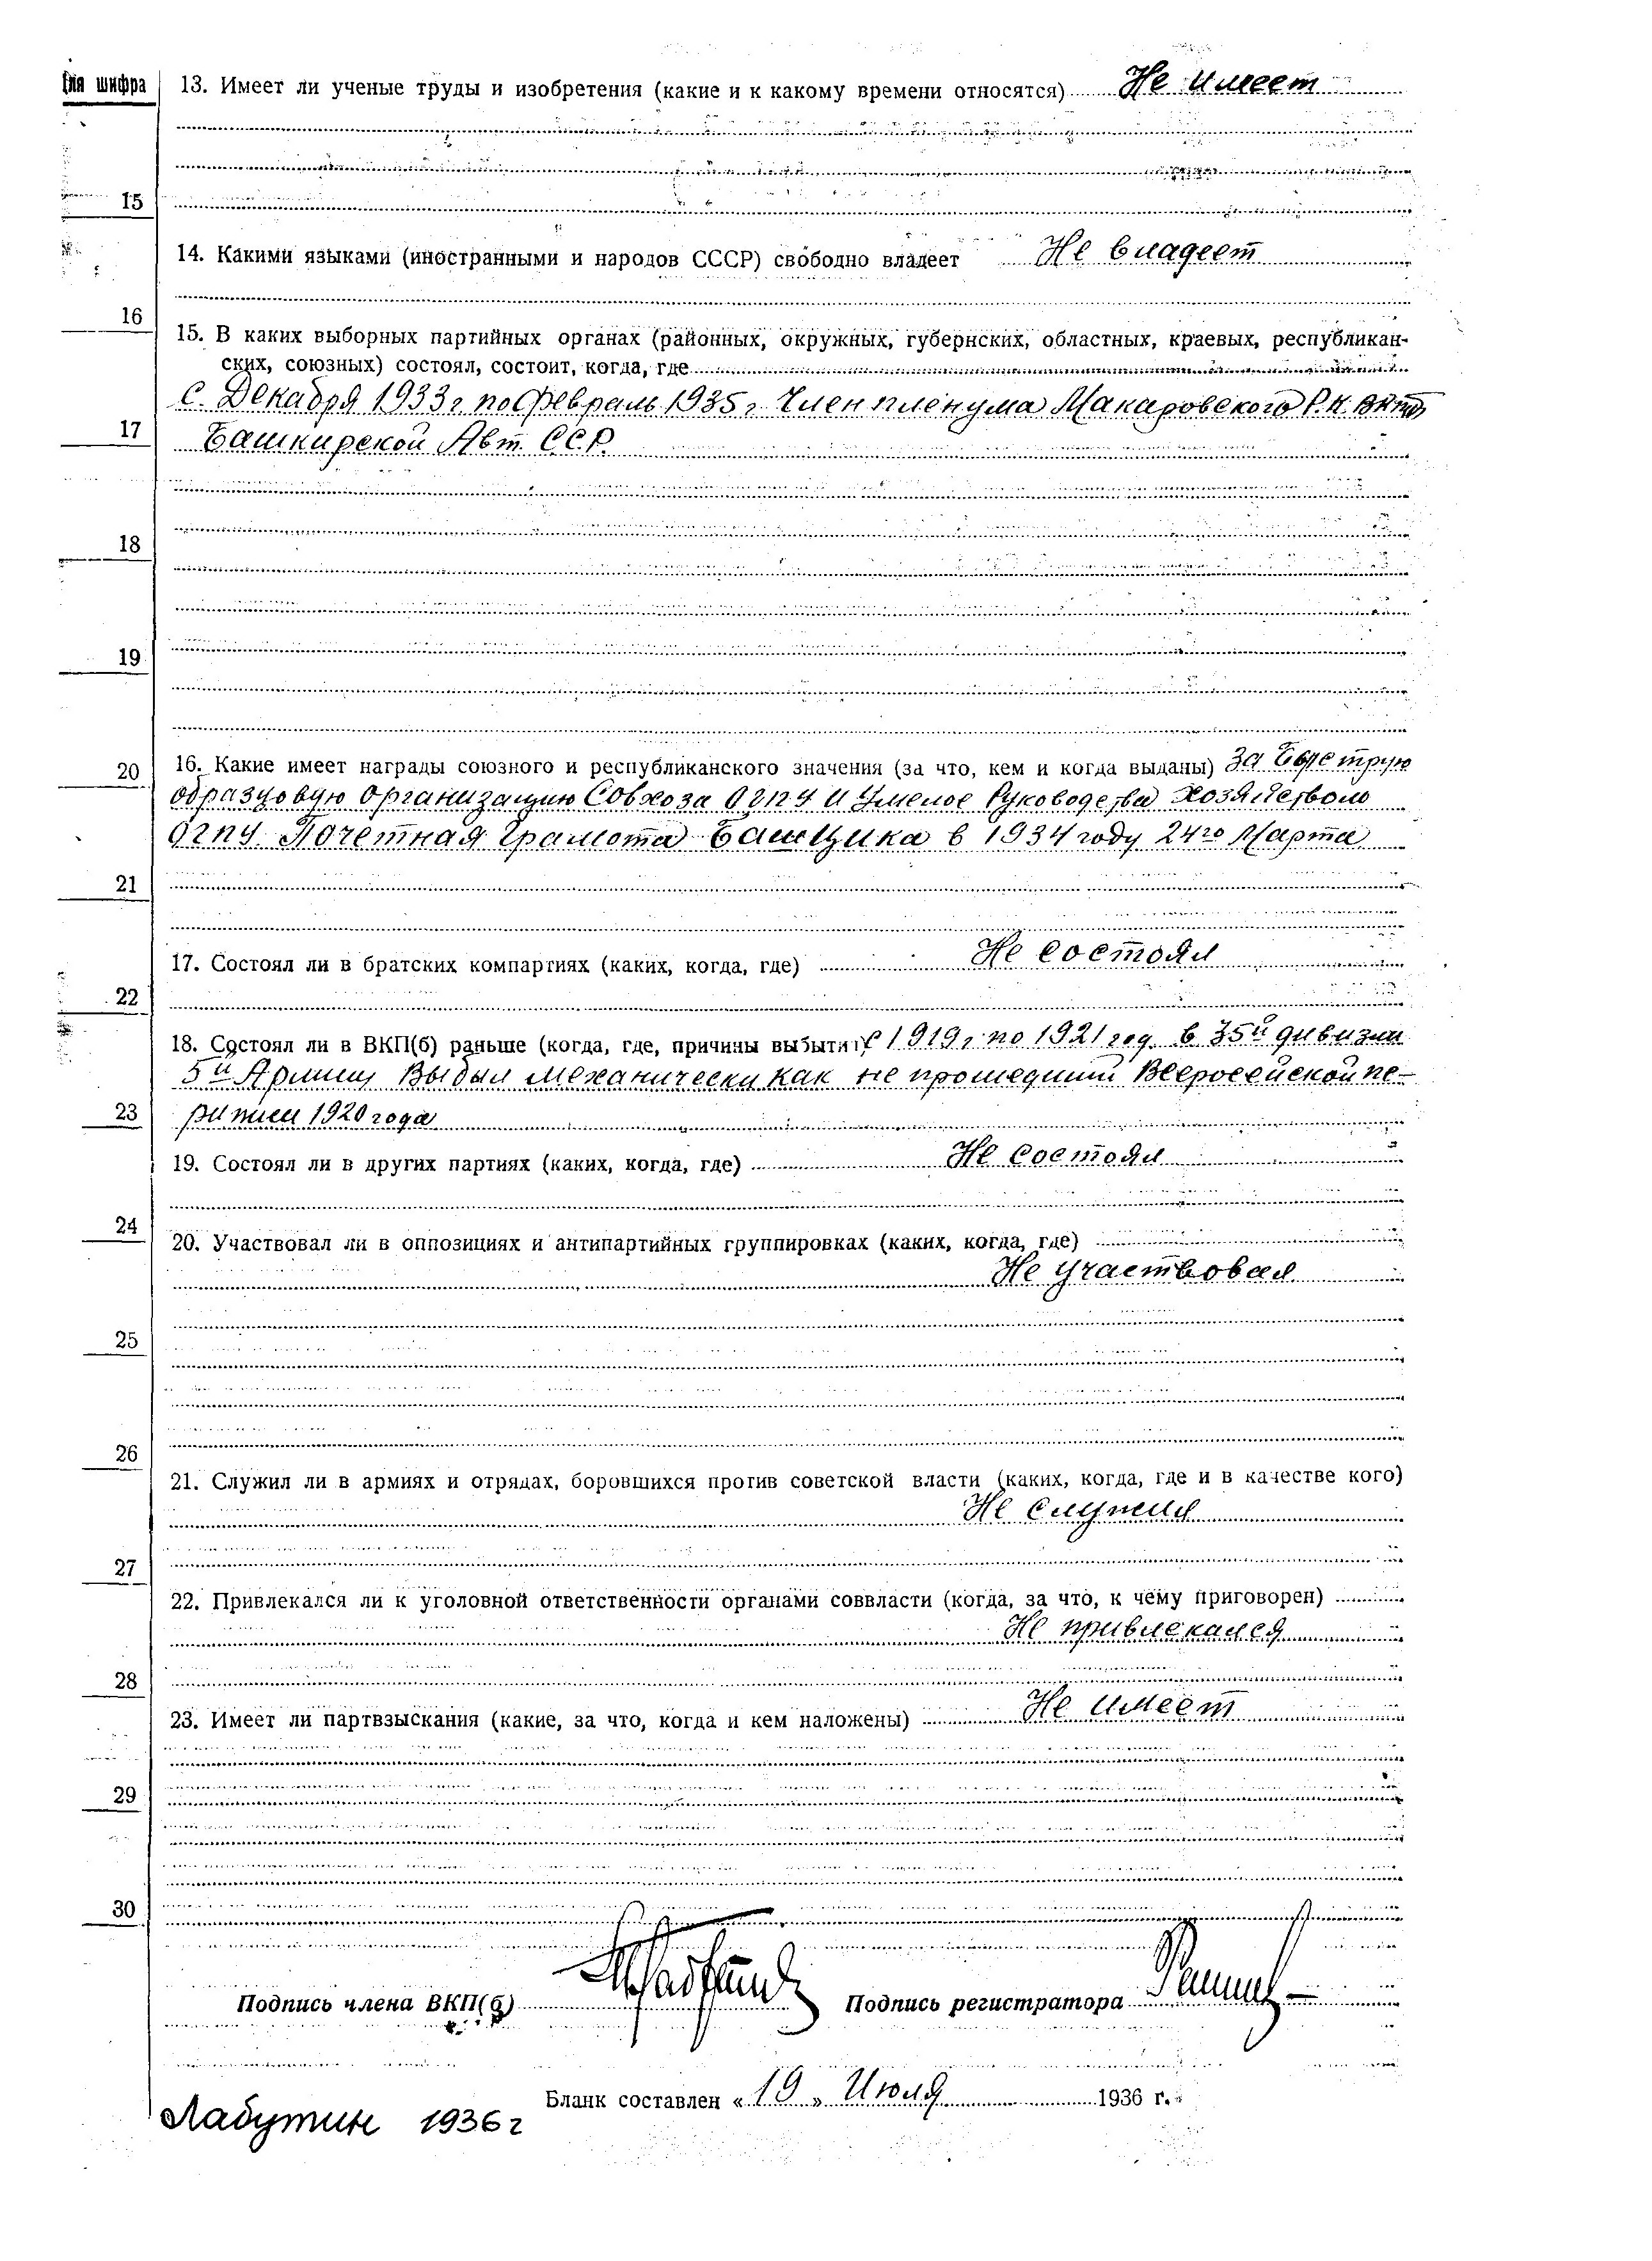 Для шифра
13. Имеет ли ученые труды и изобретения (какие и к какому времени относятся) Не имеет
15
14. Какими языками (иностранными и народов СССР) свободно владеет Не владеет
16
15. В каких выборных партийных органах (районных, окружных, губернских, областных, краевых, республикан-
ских, союзных) состоял, состоит, когда, где
с. Декабря 1933г по Февраль 1935г. Член пленума Макаровского Р.К.
17
Башкирской Авт. С.С.Р.
18
19
20
16. Какие имеет награды союзного и республиканского значения (за что, кем и когда выданы) За Быструю
образцовую организацию Совхоза ОГПУ и Умелое Руководства Хозяйством
ОГПУ. Почетная Грамота БашЦика в 1934 году 24го Марта
21
17. Состоял ли в братских компартиях (каких, когда, где) Не состоял
22
18. Состоял ли в ВКП(б) раньше (когда, где, причины выбытия) с 1919г по 1921 год в 35й дивизии
5й Армии Выбыл механически как не прошедший Всероссийской пе-
23
1920 года
19. Состоял ли в других партиях (каких, когда, где) Не состоял
24
20. Участвовал ли в оппозициях и антипартийных группировках (каких, когда, где)
Не участвовал
25
26
21. Служил ли в армиях и отрядах, боровшихся против советской власти (каких, когда, где и в качестве кого)
Не служил
27
22. Привлекался ли к уголовной ответственности органами соввласти (когда, за что, к чему приговорен)
Не привлекался
28
23. Имеет ли партвзыскания (какие, за что, когда и кем наложены) Не имеет
29
30
Подпись члена ВКП(б) Подпись регистратора
Бланк составлен «19» Июля 1936 г.
Лабутин 1936г